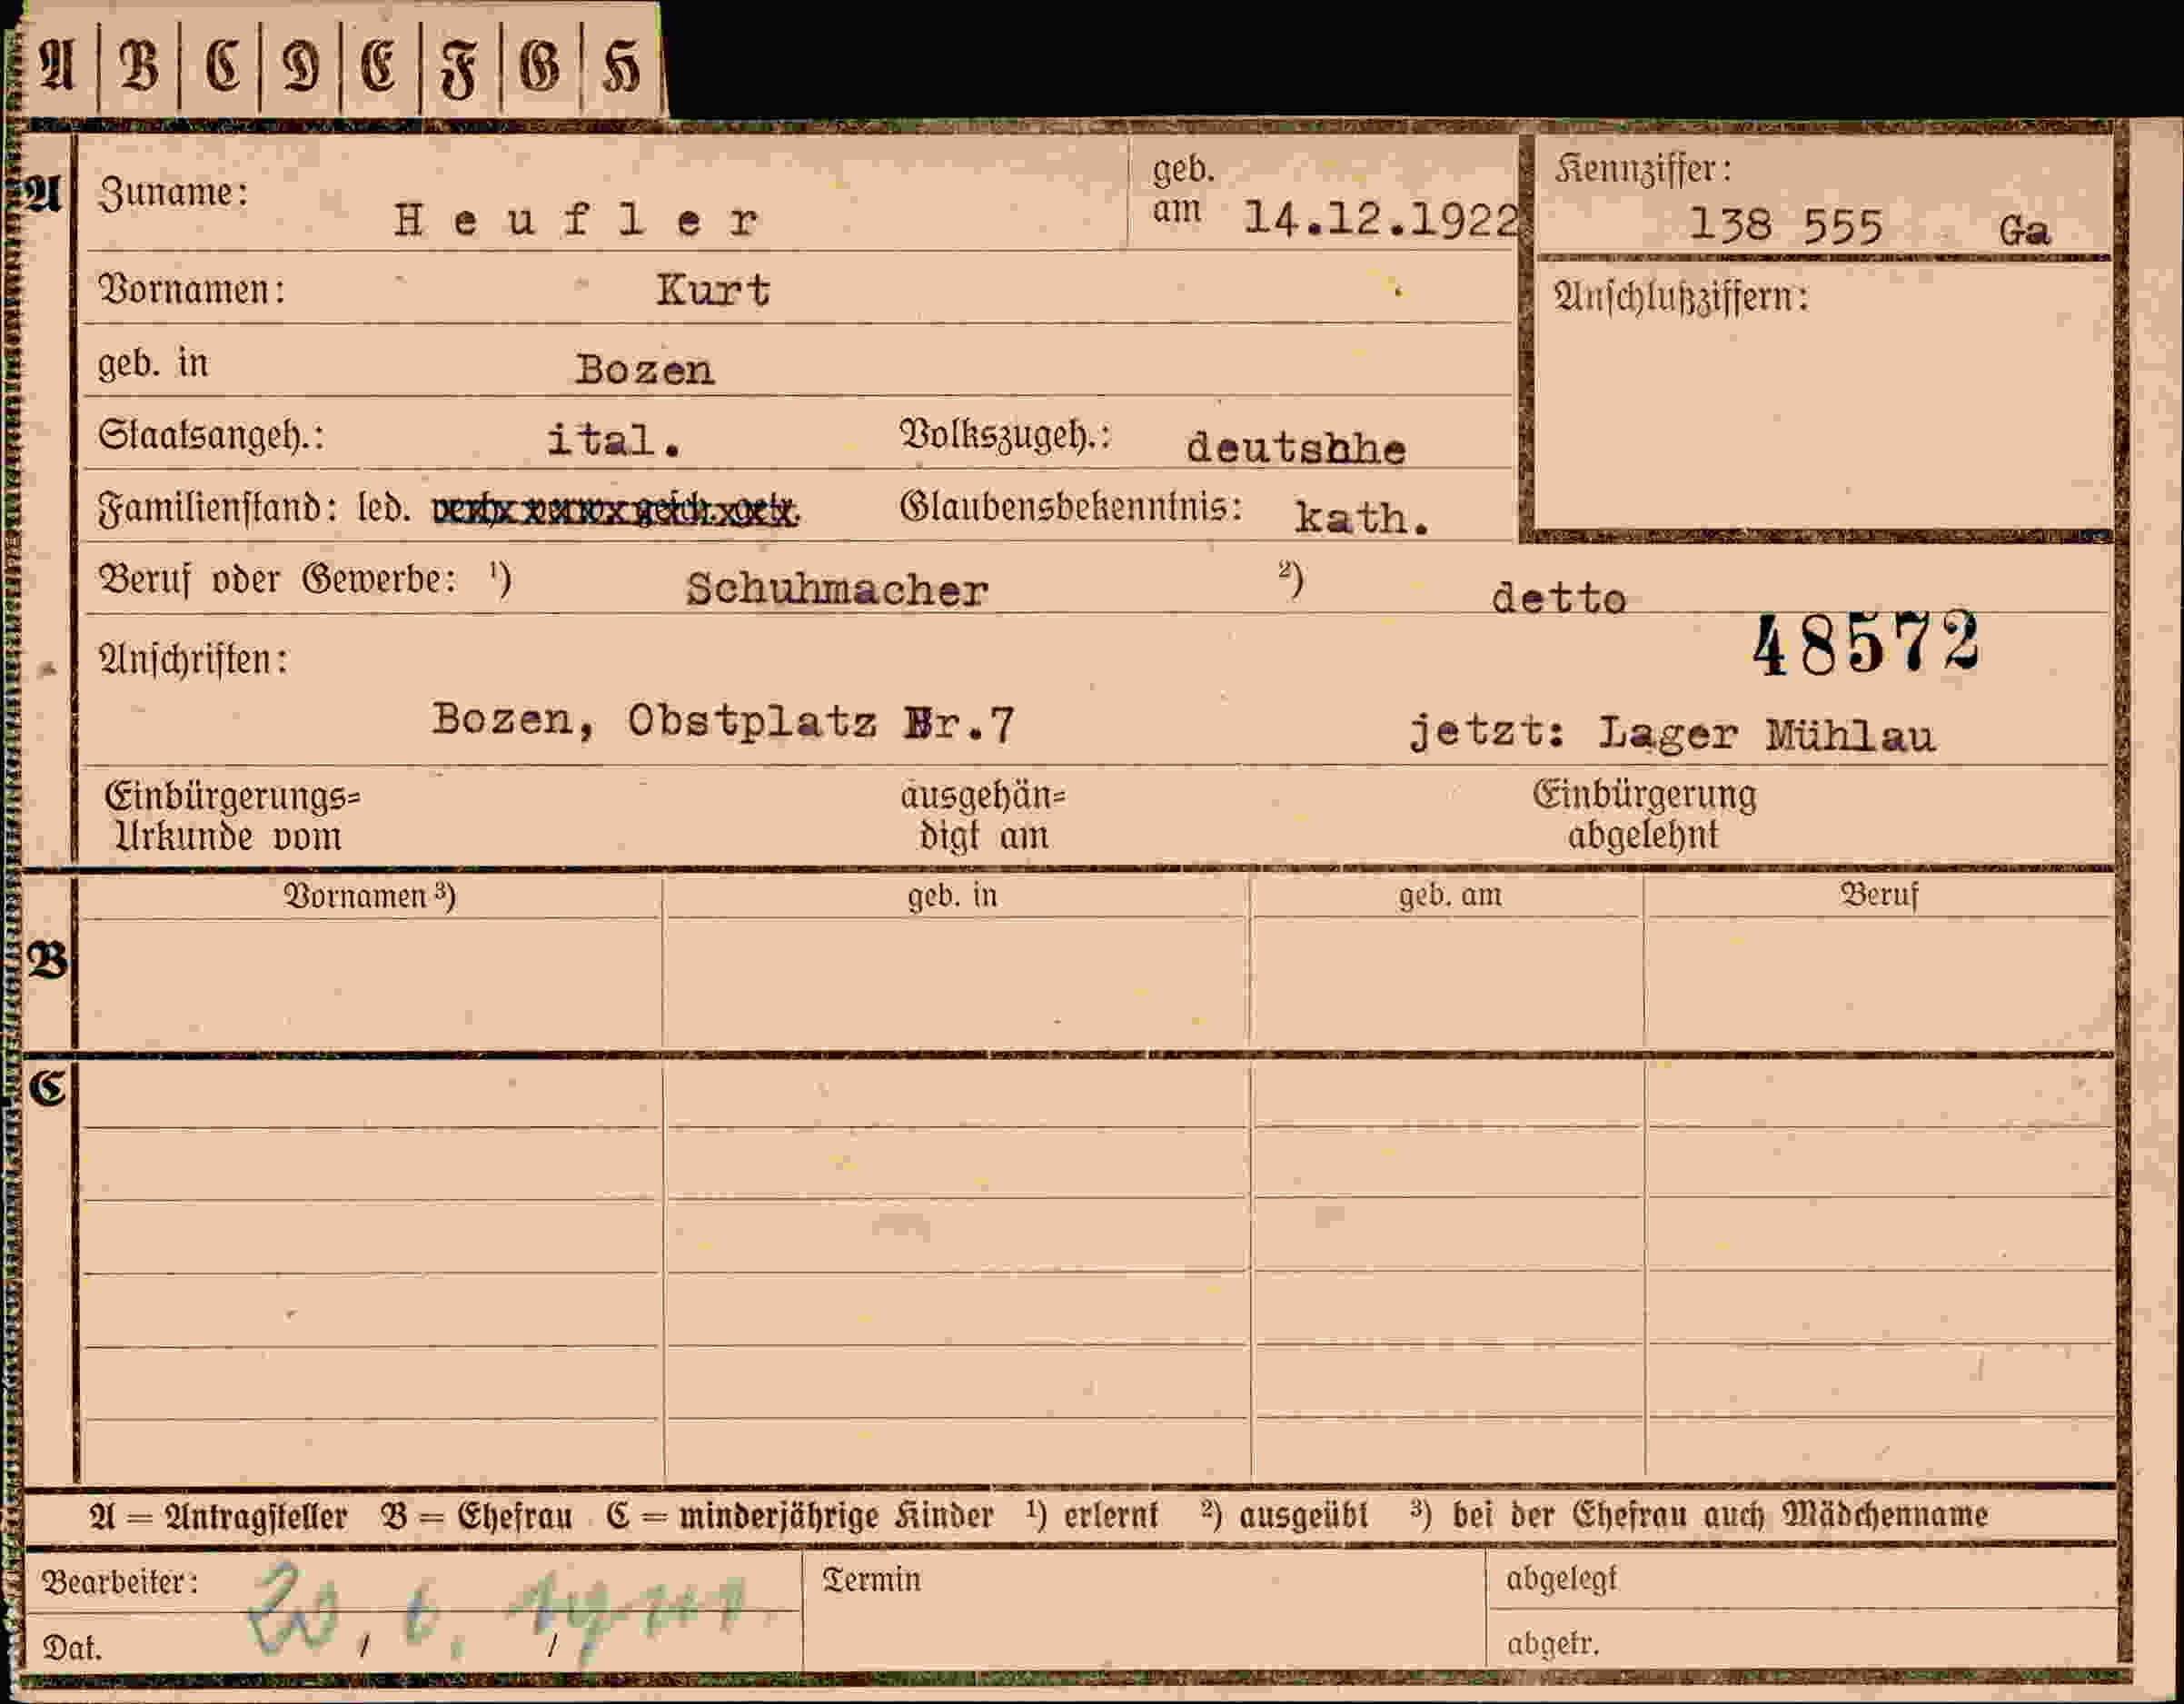 A | B | C | D | E | F | G | H
A
Zuname: Heufler geb. am 14.12.1922
Kennziffer: 138 555 Ga
Vornamen: Kurt
Anschlußziffern:
geb. in Bozen
Staatsangeh.: ital. Volkszugeh.: deutshhe
Familienstand: led. Glaubensbekenntnis: kath.
Beruf oder Gewerbe: ¹) Schuhmacher ²) detto
48572
Anschriften:
Bozen, Obstplatz Nr.7 jetzt: Lager Mühlau
Einbürgerungs= ausgehän= Einbürgerung
Urkunde vom digt am abgelehnt
Vornamen ³) geb. in geb. am Beruf
B
C
A = Antragsteller B = Ehefrau C = minderjährige Kinder ¹) erlernt ²) ausgeübt ³) bei der Ehefrau auch Mädchenname
Bearbeiter: Termin abgelegt
Dat. / / abgetr.